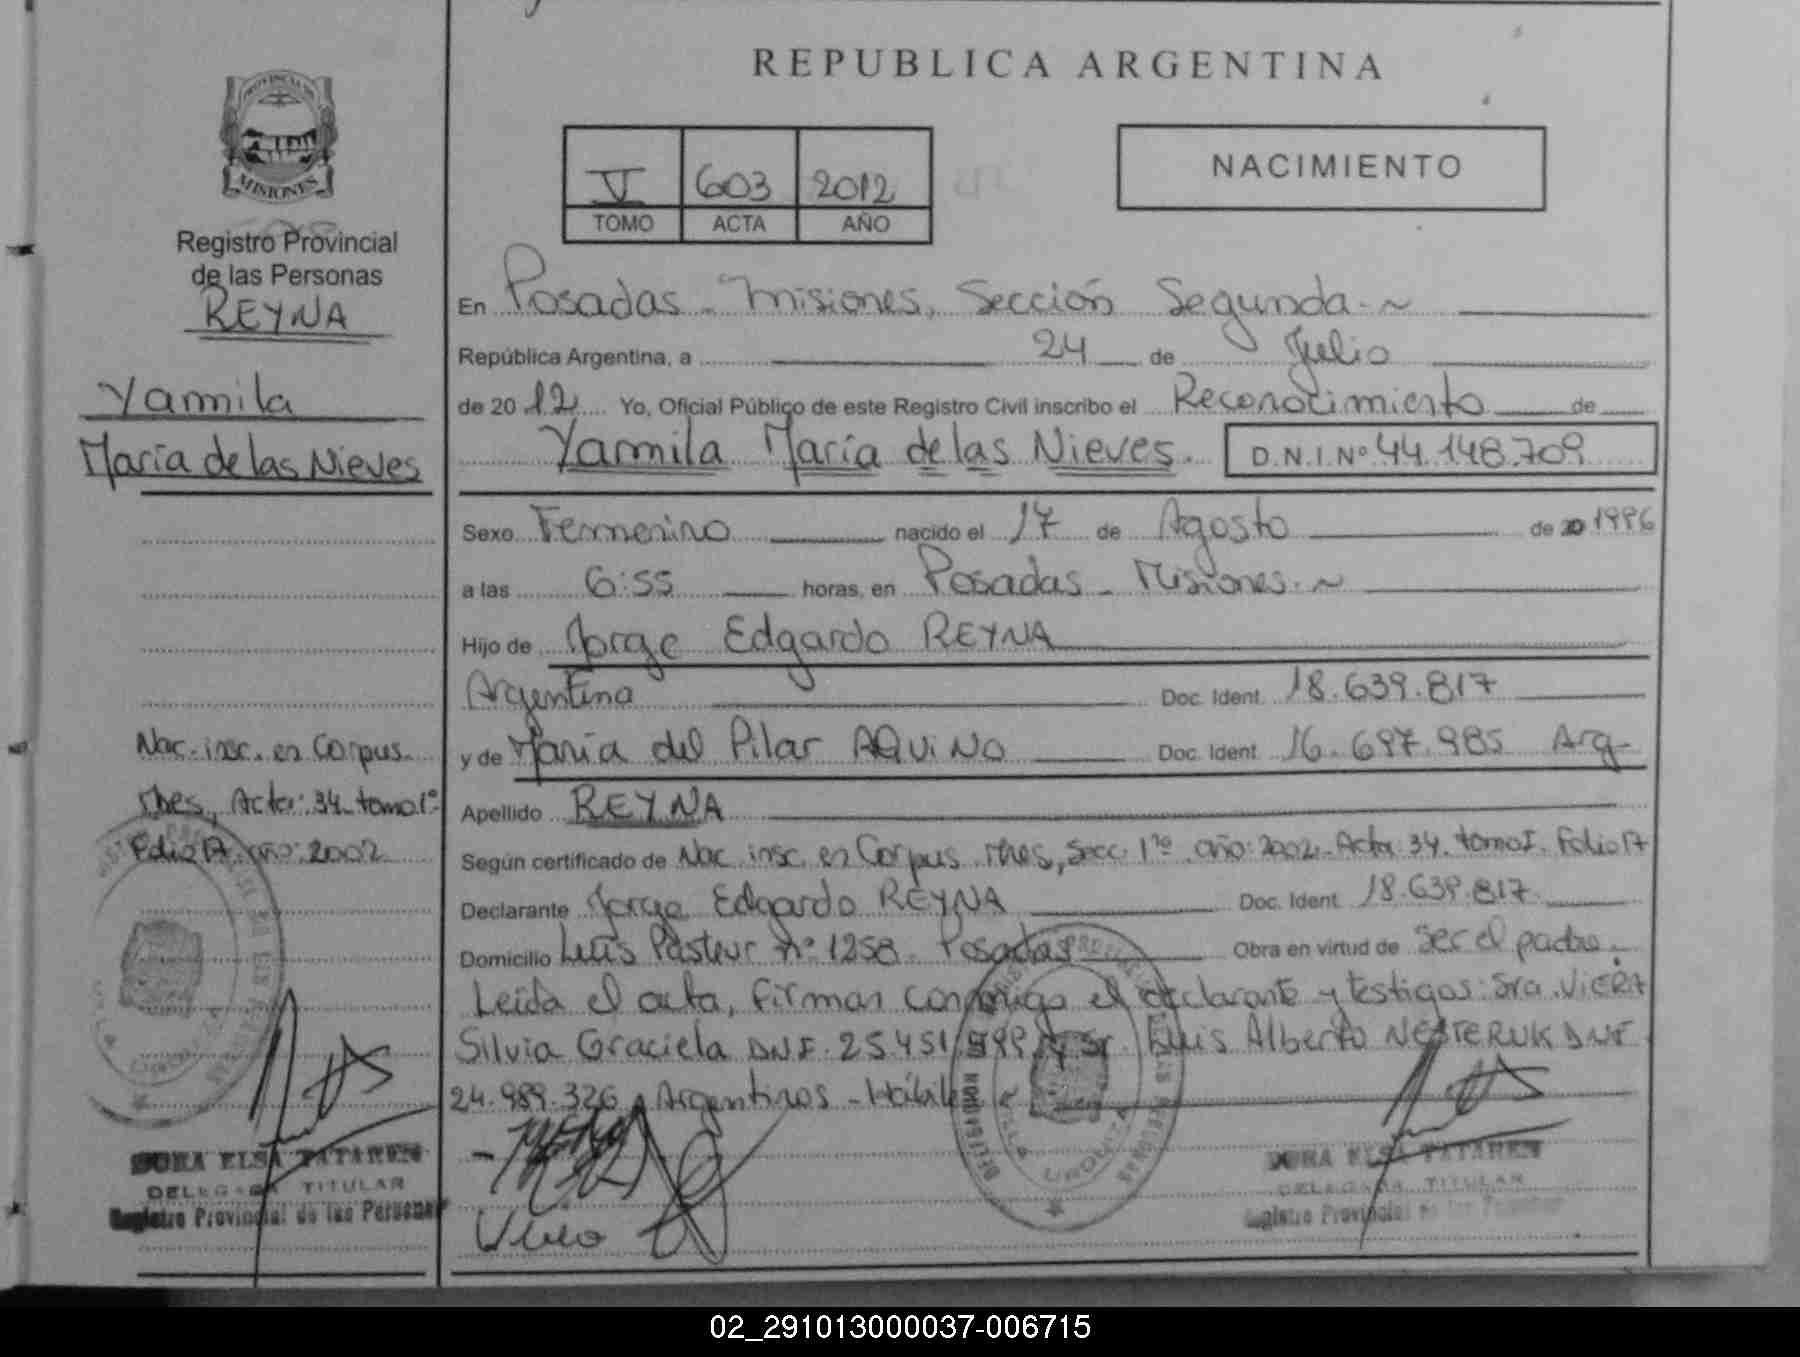 REPUBLICA ARGENTINA
PROVINCIA DE
MISIONES
Registro Provincial
de las Personas
REYNA
Yamila
María de las Nieves
Nac. insc. en Corpus.
Mnes, Acta: 34 tomo 1º
Folio 17. año: 2002
DORA ELSA TATAREN
DELEGADA TITULAR
Registro Provincial de las Personas
V 603 2012
TOMO ACTA AÑO
NACIMIENTO
En Posadas - Misiones, Sección Segunda.~
República Argentina, a 24 de Julio
de 2012 Yo, Oficial Público de este Registro Civil inscribo el Reconocimiento de
Yamila María de las Nieves. D.N.I.Nº 44.148.709
Sexo Femenino nacido el 17 de Agosto de 20 1996
a las 6:55 horas, en Posadas - Misiones.~
Hijo de Jorge Edgardo REYNA
Argentina Doc. Ident. 18.639.817
y de María del Pilar AQUINO Doc. Ident. 16.697.985 Arg-
Apellido REYNA
Según certificado de Nac. insc. en Corpus. Mnes, Secc. 1ra. año: 2002. Acta: 34. tomo I. Folio 17
Declarante Jorge Edgardo REYNA Doc. Ident. 18.639.817
Domicilio Luis Pasteur nº 1258. Posadas Obra en virtud de Ser el padre.
Leída el acta, firman conmigo el declarante y testigos: Sra. VIERA
Silvia Graciela DNI. 25.451.999 y Sr. Luis Alberto NESTERUK DNI
24.989.326, Argentinos - Hábiles
VILLA URQUIZA
DORA ELSA TATAREN
DELEGADA TITULAR
Registro Provincial de las Personas
02_291013000037-006715